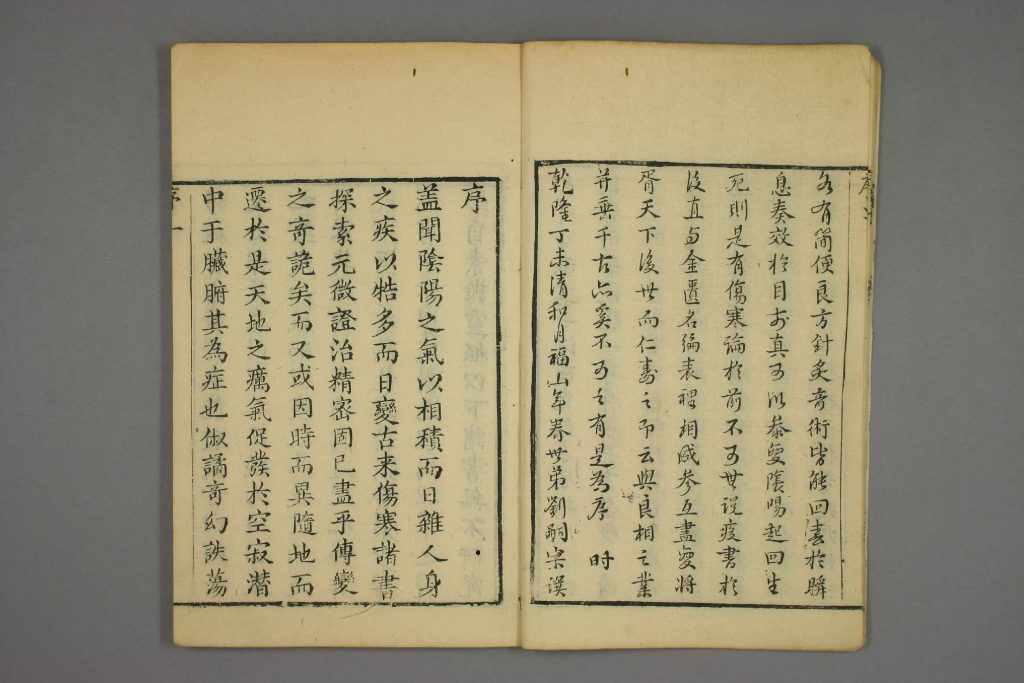 各有簡便良方針灸奇術皆能回春於瞬
息奏效於目前真可以參變陰陽起回生
死則是有傷寒論於前不可無說疫書於
後直與金匱名編表裡相成參互盡變將
胥天下後世而仁壽之即云與良相之業
并垂千古亦奚不可之有是為序　時
乾隆丁未清和月福山年眷世弟劉嗣宗譔
序
蓋聞陰陽之氣以相積而日雜人身
之疾以牿多而日變古来傷寒諸書
探索元微證治精密固已盡乎傳變
之竒詭矣而又或因時而異隨地而
遷於是天地之癘氣促發於空寂潛
中于臟腑其為症也俶譎竒幻詄蕩
序一